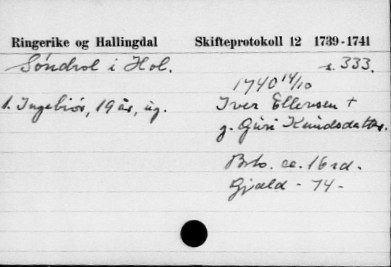 Ringerike og Hallingdal Skifteprotokoll 12 1739-1741
Søndrol i Hol. s. 333.
1740 14/10
1. Ingebiør, 19 år, ug. Iver Ellevsen +
g. Guri Knudsdatter.
Bto. ca. 16 rd.
Gjæld - 74 -